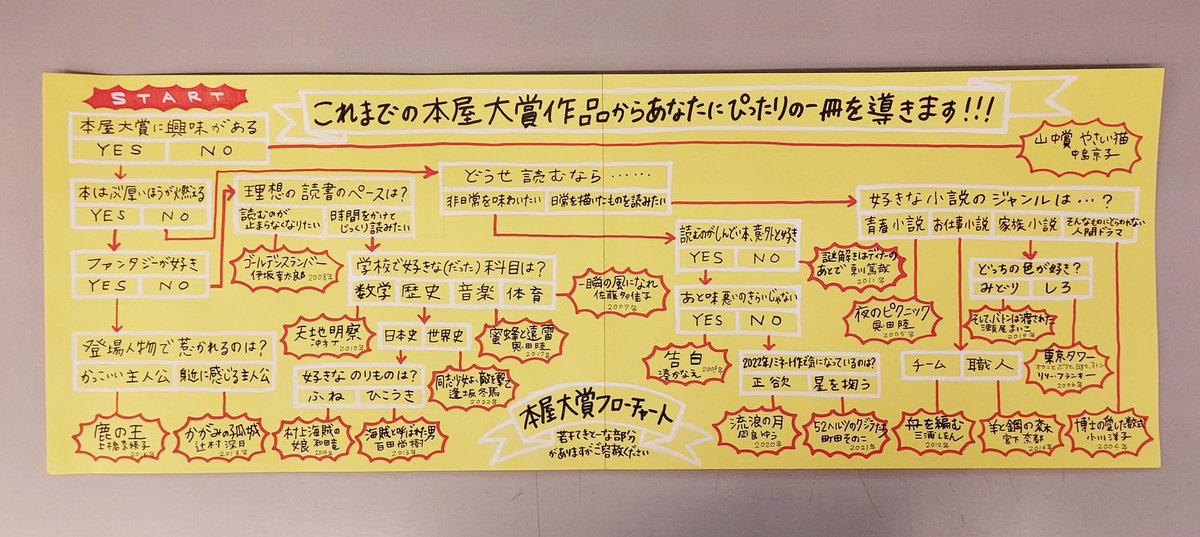 START
これまでの本屋大賞作品からあなたにぴったりの一冊を導きます!!!
本屋大賞に興味がある
YES NO
山中賞 やさしい猫
中島京子
本はぶ厚いほうが燃える
YES NO
理想の読書のペースは?
読むのが
止まらなくなりたい
時間をかけて
じっくり読みたい
どうせ読むなら……
非日常を味わいたい 日常を描いたものを読みたい
好きな小説のジャンルは…?
青春小説 お仕事小説 家族小説
そんなものにとらわれない
人間ドラマ
ファンタジーが好き
YES NO
ゴールデンスランバー
伊坂幸太郎 2008年
学校で好きな(だった)科目は?
数学 歴史 音楽 体育
一瞬の風になれ
佐藤多佳子
2007年
読むのがしんどい本、意外と好き
YES NO
謎解きはディナーの
あとで 東川篤哉
2011年
どっちの色が好き?
みどり しろ
天地明察
冲方丁
2010年
日本史 世界史
蜜蜂と遠雷
恩田陸
2017年
おと味悪いのきらいじゃない
YES NO
夜のピクニック
恩田陸
2005年
そして、バトンは渡された
瀬尾まいこ
2019年
登場人物で惹かれるのは?
かっこいい主人公 身近に感じる主人公
好きなのりものは?
ふね ひこうき
同志少女よ、敵を撃て
逢坂冬馬
2022年
告白
湊かなえ
2009年
2022年ノミネート作で気になっているのは?
正欲 星を掬う
チーム 職人
東京タワー
オカンとボクと、時々、オトン
リリー・フランキー
2006年
鹿の王
上橋菜穂子
2015年
かがみの孤城
辻村深月
2018年
村上海賊の
娘 和田竜
2014年
海賊とよばれた男
百田尚樹
2013年
本屋大賞フローチャート
若干てきとーな部分
がありますがご容赦ください
流浪の月
凪良ゆう
2020年
52ヘルツのクジラたち
町田そのこ
2021年
舟を編む
三浦しをん
2012年
羊と鋼の森
宮下奈都
2016年
博士の愛した数式
小川洋子
2004年